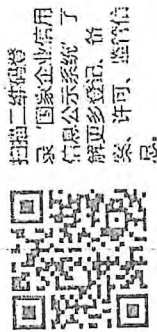 扫描二维码登
录‘国家企业信用
信息公示系统’了
解更多登记、备
案、许可、监管信
息。